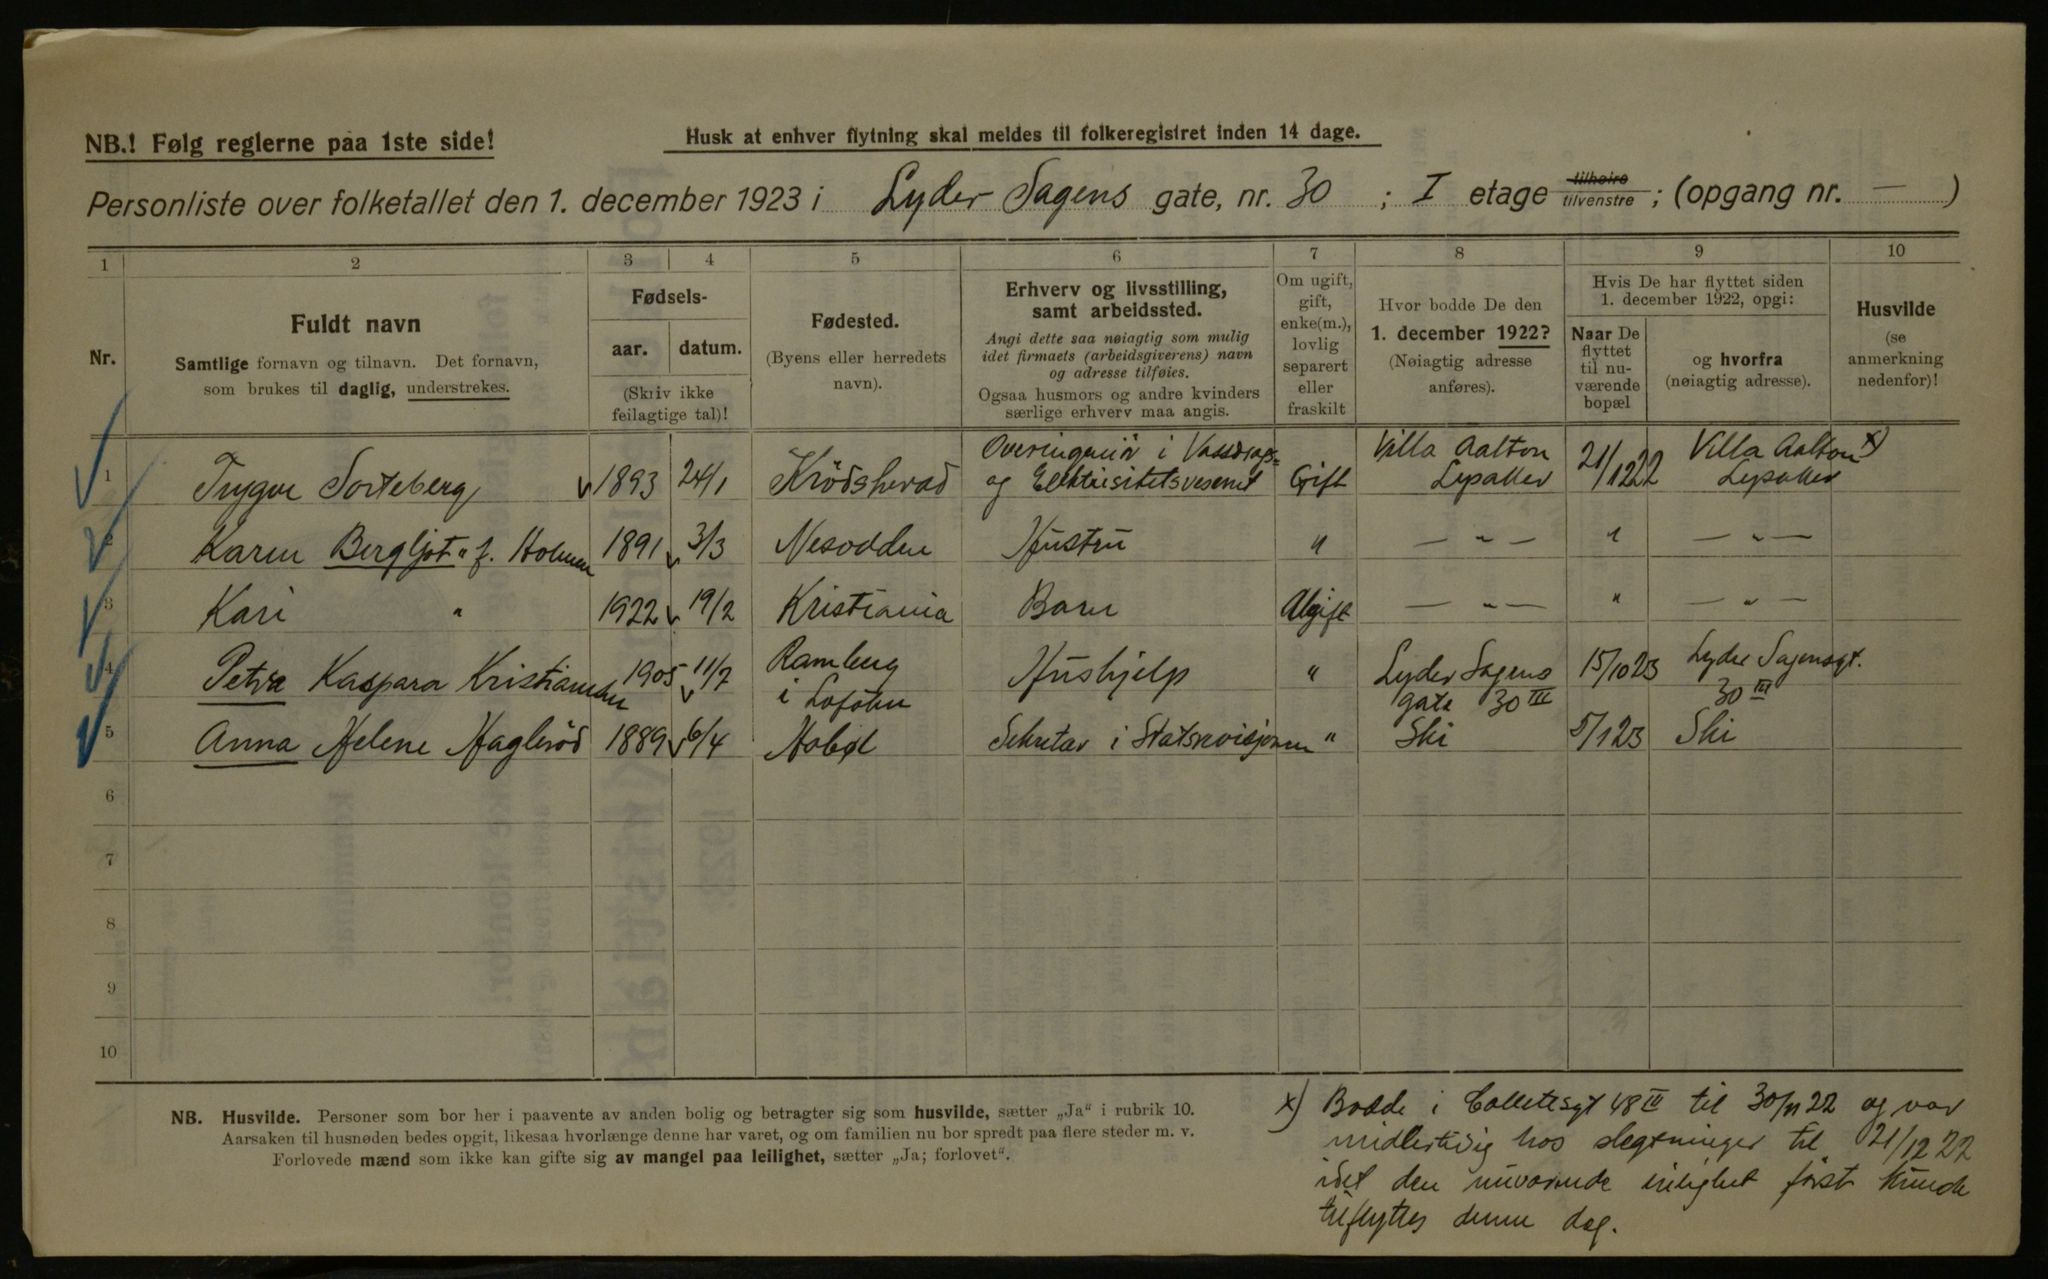 NB.! Følg reglerne paa 1ste side!
Husk at enhver flytning skal meldes til folkeregistret inden 14 dage.
Personliste over folketallet den 1. december 1923 i Lyder Sagens gate, nr. 30 ; I etage tilhøire tilvenstre ; (opgang nr. — )
1 2 3 4 5 6 7 8 9 10
Nr.
Fuldt navn
Samtlige fornavn og tilnavn. Det fornavn,
som brukes til daglig, understrekes.
Fødsels-
aar. datum.
(Skriv ikke
feilagtige tal)!
Fødested.
(Byens eller herredets
navn).
Erhverv og livsstilling,
samt arbeidssted.
Angi dette saa nøiagtig som mulig
idet firmaets (arbeidsgiverens) navn
og adresse tilføies.
Ogsaa husmors og andre kvinders
særlige erhverv maa angis.
Om ugift,
gift,
enke(m.),
lovlig
separert
eller
fraskilt
Hvor bodde De den
1. december 1922?
(Nøiagtig adresse
anføres).
Hvis De har flyttet siden
1. december 1922, opgi:
Naar De
flyttet
til nu-
værende
bopæl
og hvorfra
(nøiagtig adresse).
Husvilde
(se
anmerkning
nedenfor)!
1 Trygve Sorteberg 1893 24/1 Krødsherad Overingeniør i Vassdrags- og Elektrisitetsvesenet Gift Villa Aalton Lysaker 21/12 22 Villa Aalton x) Lysaker
2 Karen Bergljot " f. Holmen 1891 3/3 Nesodden Hustru " — " — " — " —
3 Kari " 1922 19/2 Kristiania Barn Ugift — " — " — " —
4 Petra Kaspara Kristiansen 1905 11/7 Ramberg i Lofoten Hushjelp " Lyder Sagens gate 30 III 15/10 23 Lyder Sagensgt. 30 III
5 Anna Helene Haglerød 1889 6/4 Hobøl Sekretær i Statsrevisjonen " Ski 5/1 23 Ski
6
7
8
9
10
NB. Husvilde. Personer som bor her i paavente av anden bolig og betragter sig som husvilde, sætter „Ja“ i rubrik 10.
Aarsaken til husnøden bedes opgit, likesaa hvorlænge denne har varet, og om familien nu bor spredt paa flere steder m. v.
Forlovede mænd som ikke kan gifte sig av mangel paa leilighet, sætter „Ja; forlovet“.
x) Bodde i Colletsgt 48 III til 30/11 22 og var
midlertidig hos slegtninger til 21/12 22
idet den nuværende leilighet først kunde
tilflyttes denne dag.